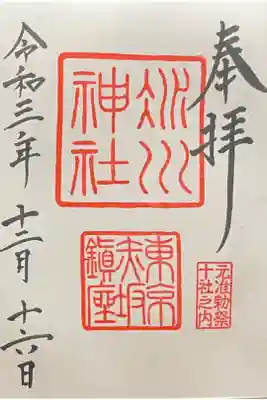 奉拝
氷川
神社
東京
赤坂
鎮座
元准勅祭
十社之内
令和三年 十二月 十六日